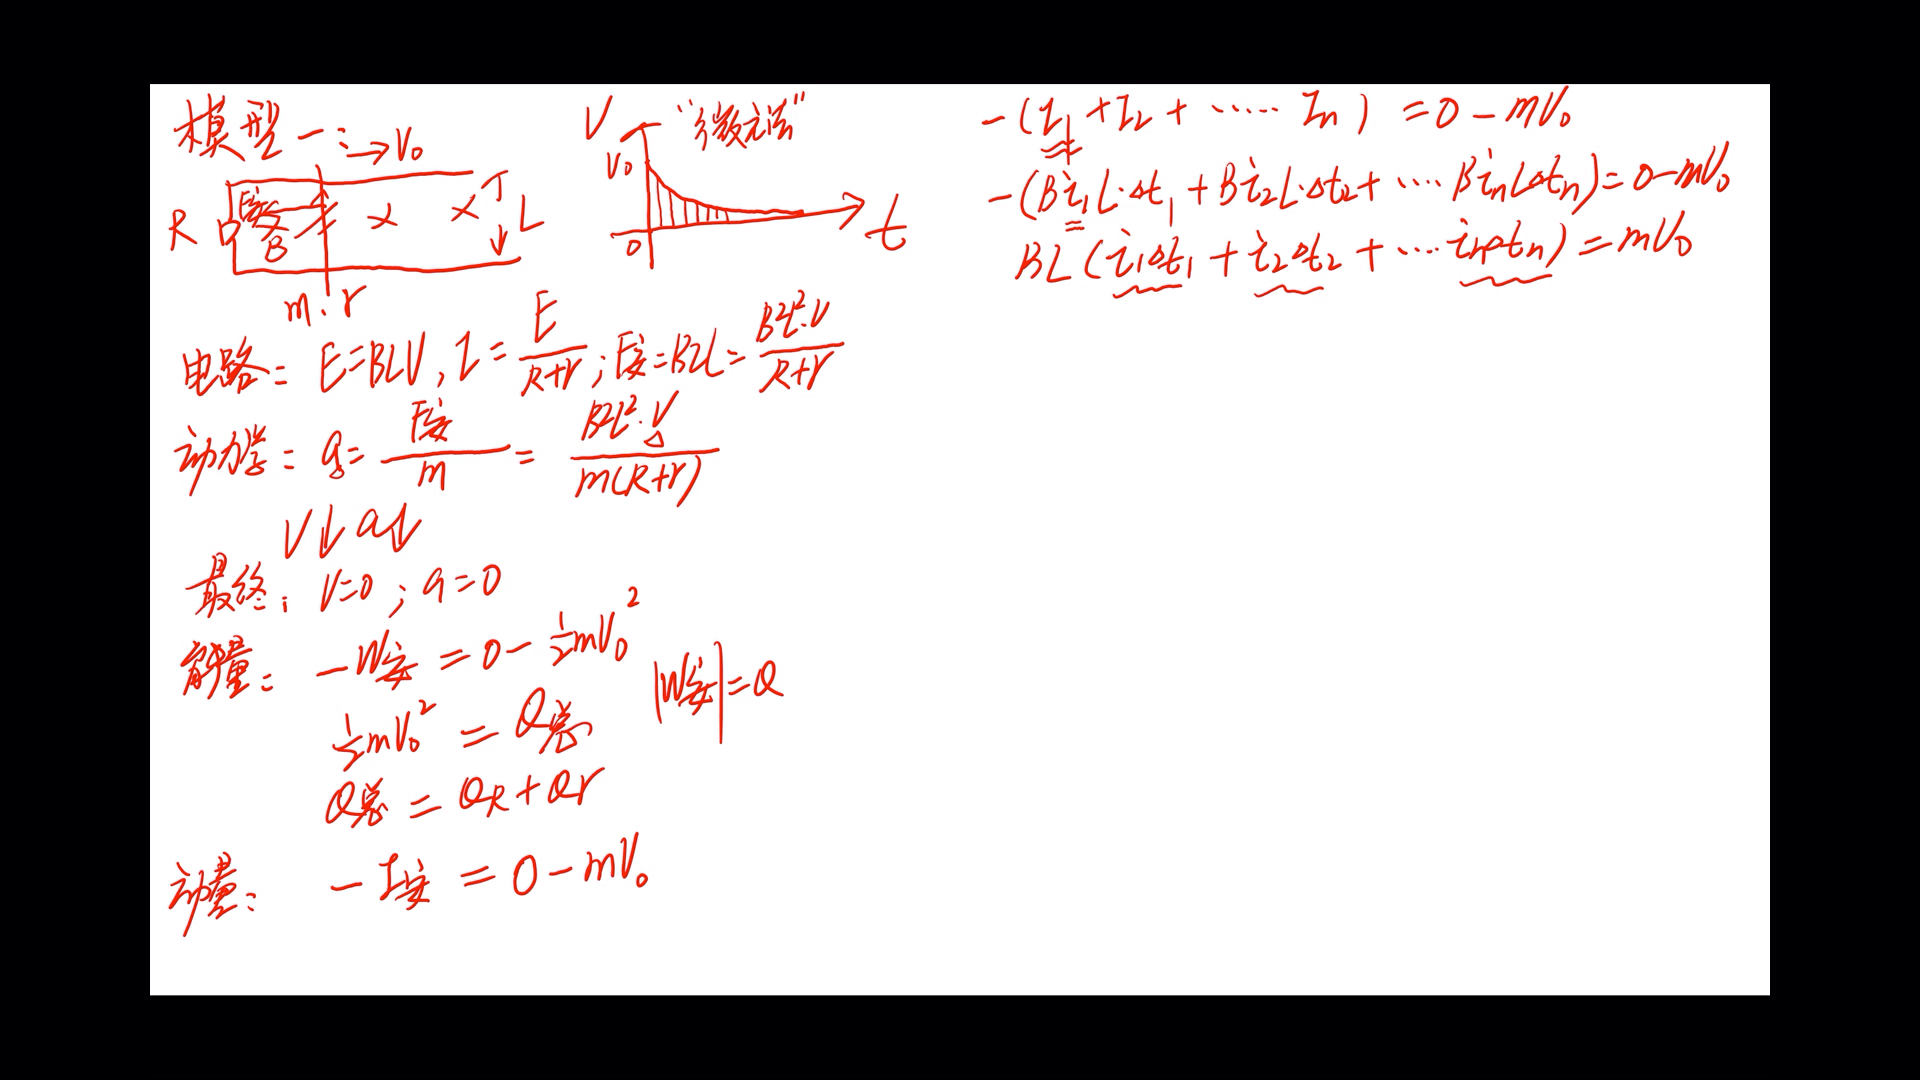 模型一:
→V₀
R
F安
B
× ×
L
m.r
V "微元法"
V₀
0
t
电路: E=BLV, I=E/(R+r); F安=BIL=B²L²·V/(R+r)
动力学: a=F安/m=B²L²·V/(m(R+r))
V↓a↓
最终: V=0; a=0
能量: -W安=0-½mV₀²
|W安|=Q
½mV₀²=Q总
Q总=QR+Qr
动量: -I安=0-mV₀
-(I₁+I₂+⋯⋯In)=0-mV₀
-(Bi₁L·Δt₁+Bi₂L·Δt₂+⋯BinLΔtn)=0-mV₀
BL(i₁Δt₁+i₂Δt₂+⋯inΔtn)=mV₀